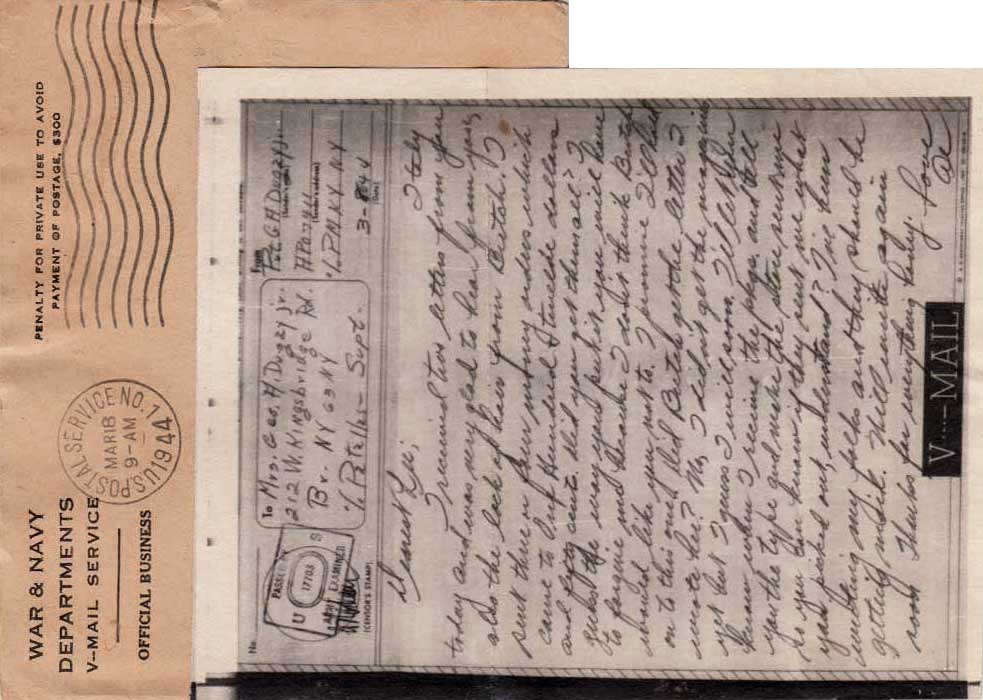 WAR & NAVY
DEPARTMENTS
V–MAIL SERVICE
OFFICIAL BUSINESS
U.S. POSTAL SERVICE NO. 1
MAR 18
9 – AM
1944
PENALTY FOR PRIVATE USE TO AVOID
PAYMENT OF POSTAGE, $300
No.
PASSED BY
U S
17703
ARMY EXAMINER
(CENSOR'S STAMP)
To Mrs. Geo. H. Duzzy jr.
212 W. Kingsbridge Rd.
Bx. NY 63 NY
% Patello - Supt.
From
Pvt. G H Duzzy jr.
(Sender's name)
APO
(Sender's address)
% PM NY NY
3-8-44
(Date)
Italy
Dearest
I received two letters from you
today and was very glad to hear from you,
also the lock of hair from Butch. I
sent three new money orders which
came to One Hundred & twelve dollars
and cents. Did you get them all? I
guess the way you put it you will have
to forgive me because I didn't think Butch
should like you not to. I promise I'll hold
on to this one. Did Butch get the letter I
wrote her? No, I didn't get the magazine
yet but I guess I will soon. I'll let you
know when I receive the pkge. and tell
you the type and make the store sent me
so you can know if they sent me what
you picked out, understand? I've been
writing my folks and they should be
getting mail. Will write again
soon. Thanks for everything Baby. Love
V···–MAIL